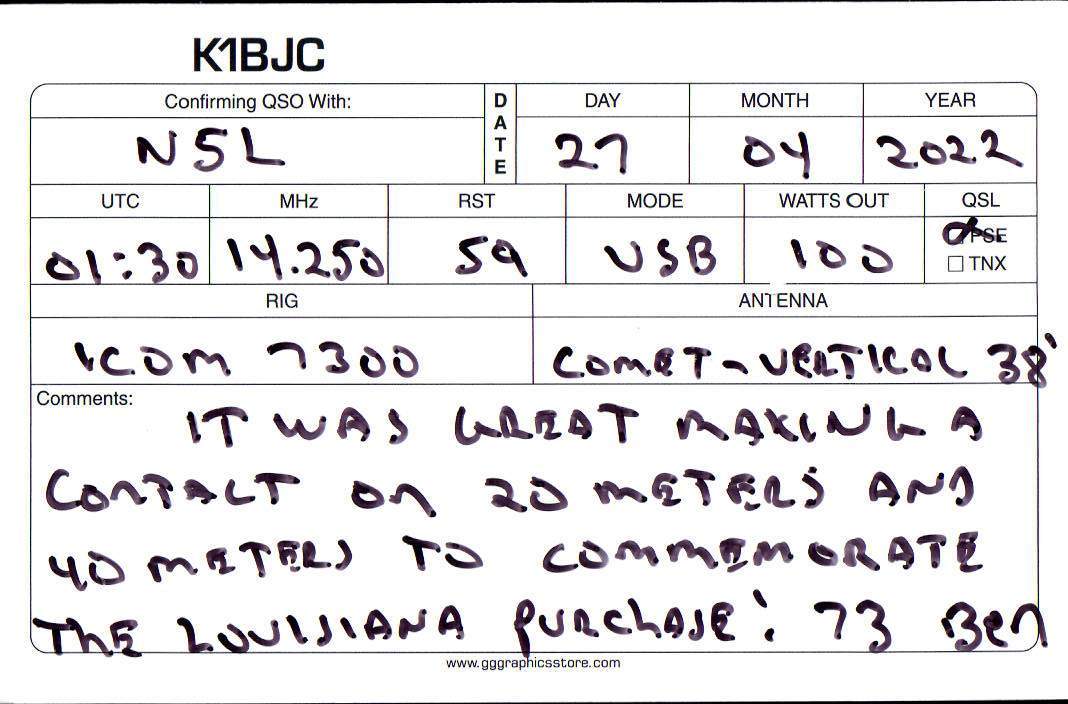 K1BJC
Confirming QSO With:
DATE
DAY MONTH YEAR
N5L 27 04 2022
UTC MHz RST MODE WATTS OUT QSL
01:30 14.250 59 USB 100
PSE
TNX
RIG ANTENNA
ICOM 7300 COMET-VERTICAL 38'
Comments:
IT WAS GREAT MAKING A
CONTACT ON 20 METERS AND
40 METERS TO COMMEMORATE
THE LOUISIANA PURCHASE! 73 Ben
www.gggraphicsstore.com